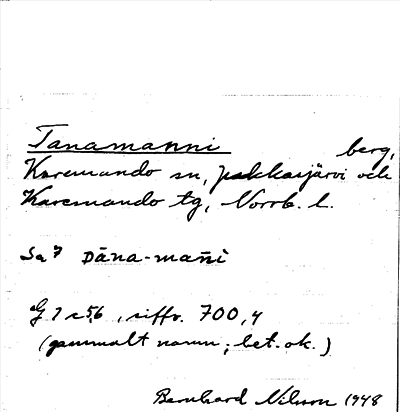 Tanamanni berg,
Karemando sn, Jukkasjärvi och
Karemando tg, Norrb. l.
Sa 7 Dāna-mańi
G 7 c 56, siffr. 700,4
(gammalt namn; bet. ok.)
Bernhard Nilsson 1948